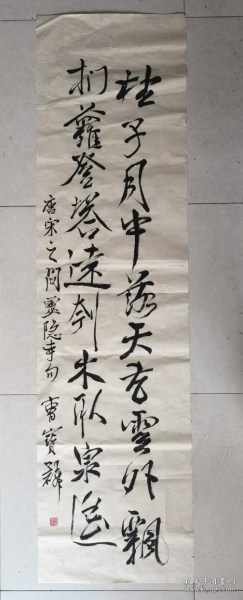 桂子月中落天香雲外飄
捫蘿登塔遠刳木取泉遥
唐宋之問靈隐寺句 曹寶麟